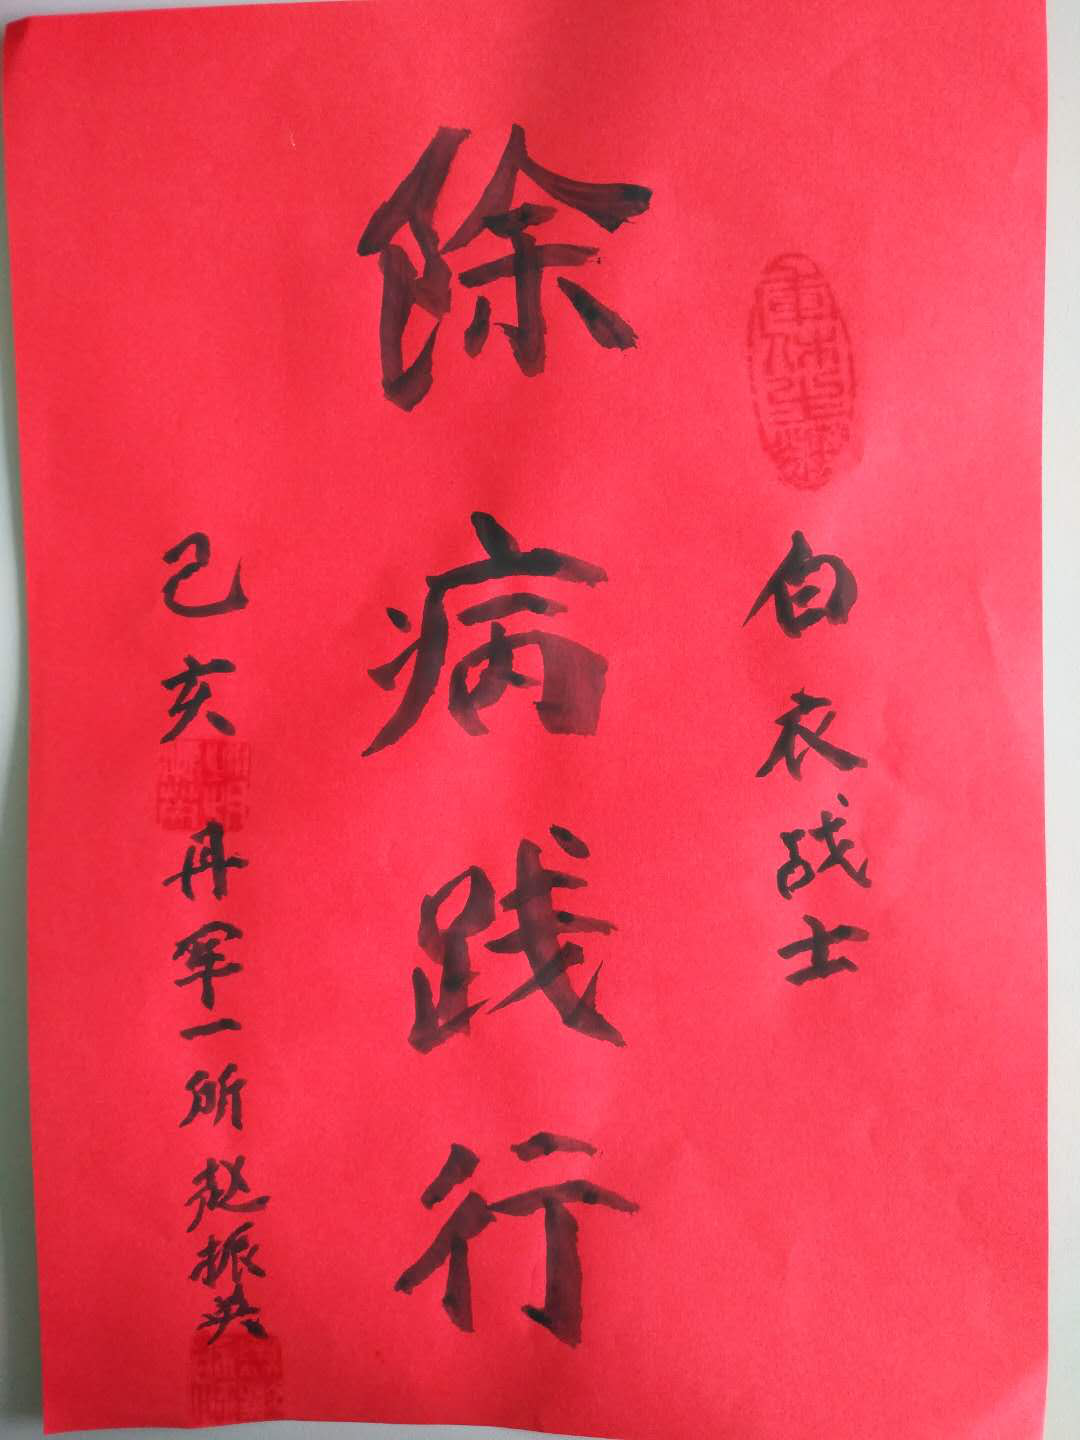 白衣战士
除病践行
己亥 冉军一所赵振英